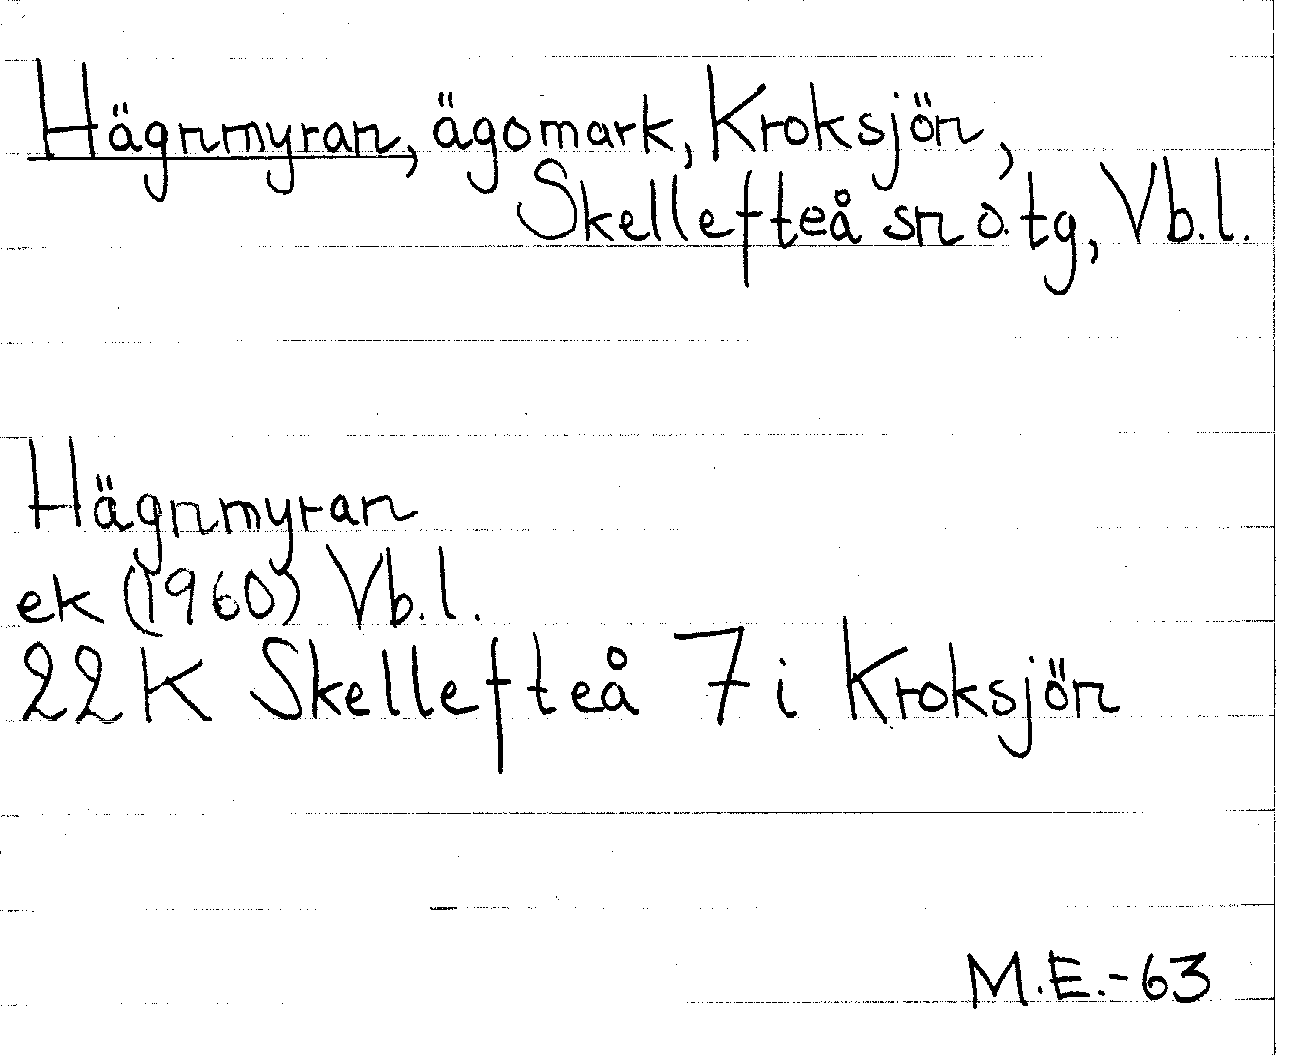 Hägnmyran, ägomark, Kroksjön,
Skellefteå sn o. tg, Vb.l.
Hägnmyran
ek (1960) Vb.l.
22K Skellefteå 7i Kroksjön
M.E.-63